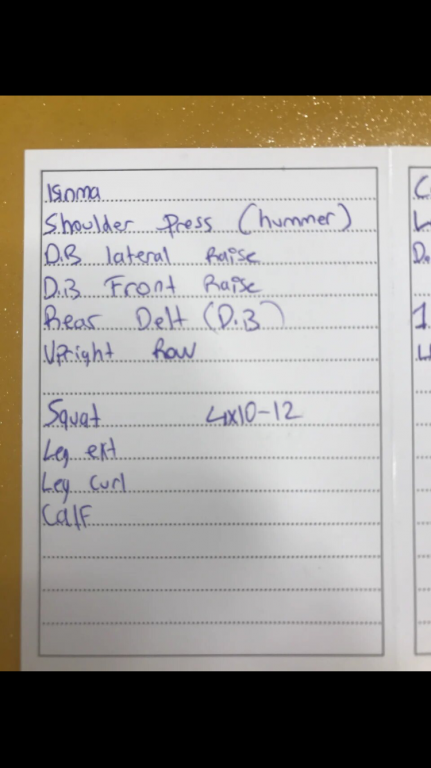 Isınma
Shoulder Press (hummer)
D.B lateral Raise
D.B Front Raise
Rear Delt (D.B)
Upright Row
Squat 4x10-12
Leg ext
Leg curl
Calf